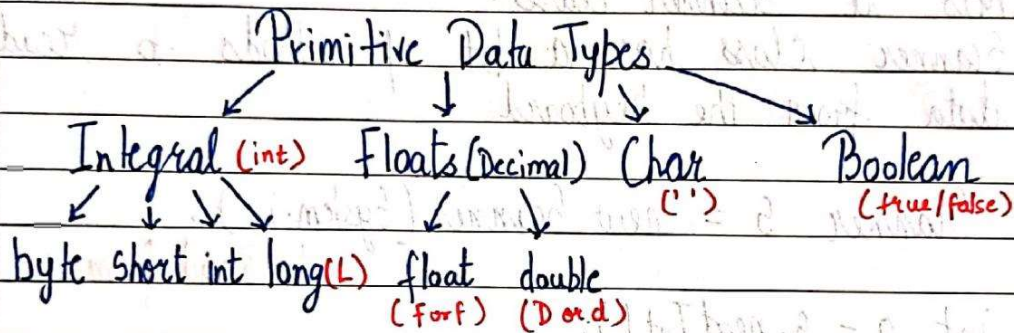 Primitive Data Types
Integral (int) Floats (Decimal) Char Boolean
('') (true/false)
byte short int long(L) float double
(F or f) (D or d)